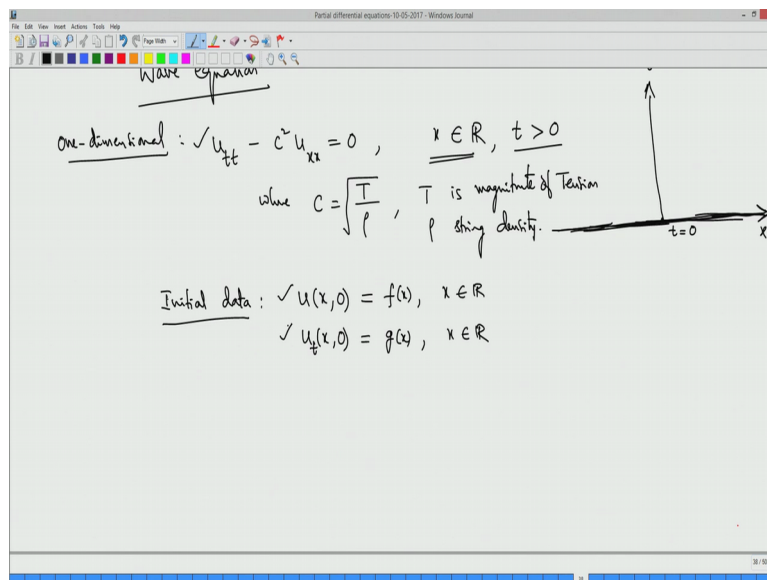 Partial differential equations-10-05-2017 - Windows Journal
File Edit View Insert Actions Tools Help
Page Width
B I
Wave equation
one-dimensional : ✓ u_tt - c² u_xx = 0 , x ∈ ℝ, t > 0
where C = √(T/ρ) , T is magnitute of Tension
ρ string density.
t=0
x
Initial data : ✓ u(x,0) = f(x), x ∈ ℝ
✓ u_t(x,0) = g(x), x ∈ ℝ
38 / 50
38